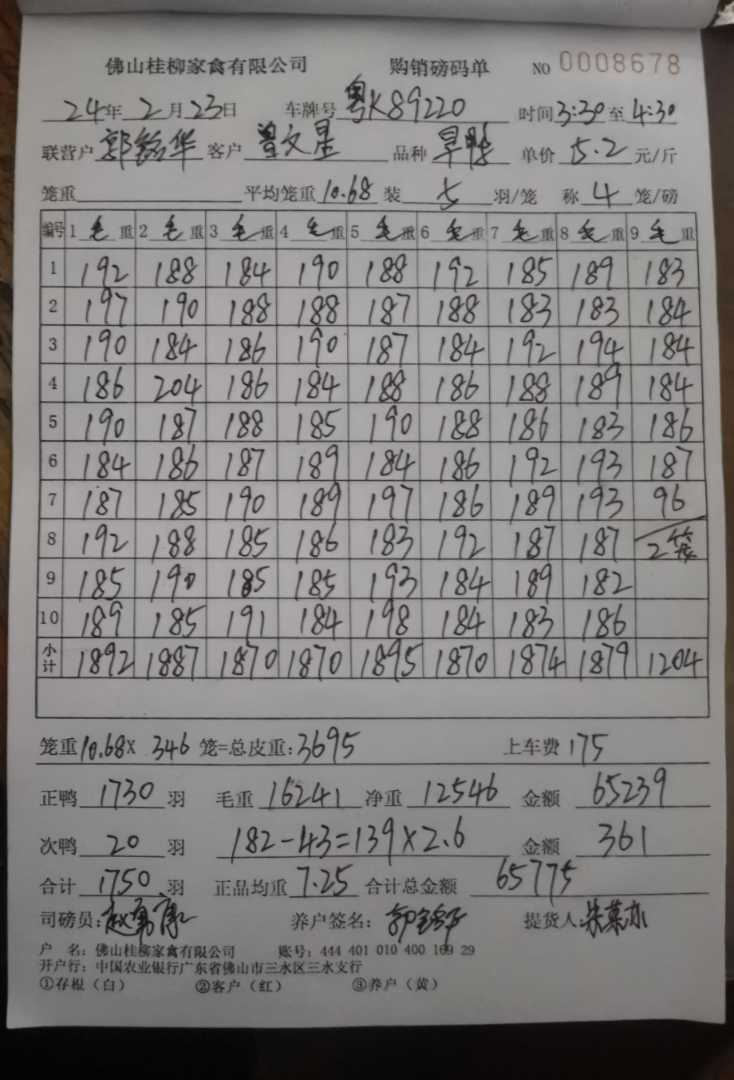 佛山桂柳家禽有限公司 购销磅码单 NO 0008678
24年2月23日 车牌号 粤K89220 时间3:30至4:30
联营户 郭铭华 客户 曾文星 品种 旱鸭 单价 5.2 元/斤
笼重 平均笼重 10.68 装 5 羽/笼 称 4 笼/磅
编号 1 毛 重 2 毛 重 3 毛 重 4 毛 重 5 毛 重 6 毛 重 7 毛 重 8 毛 重 9 毛 重
1 192 188 184 190 188 192 185 189 183
2 197 190 188 188 187 188 183 183 184
3 190 184 186 190 187 184 192 194 184
4 186 204 186 184 188 186 188 189 184
5 190 187 188 185 190 188 186 183 186
6 184 186 187 189 184 186 192 193 187
7 187 185 190 189 197 186 189 193 96
8 192 188 185 186 183 192 187 187 2袋
9 185 190 185 185 193 184 189 182
10 189 185 191 184 198 184 183 186
小计 1892 1887 1870 1870 1895 1870 1874 1879 1204
笼重 10.68× 346 笼=总皮重:3695 上车费 175
正鸭 1730 羽 毛重 16241 净重 12546 金额 65239
次鸭 20 羽 182-43=139×2.6 金额 361
合计 1750 羽 正品均重 7.25 合计总金额 65775
司磅员: 养户签名: 提货人:
户 名:佛山桂柳家禽有限公司 账号:444 401 010 400 169 29
开户行:中国农业银行广东省佛山市三水区三水支行
①存根(白) ②客户(红) ③养户(黄)